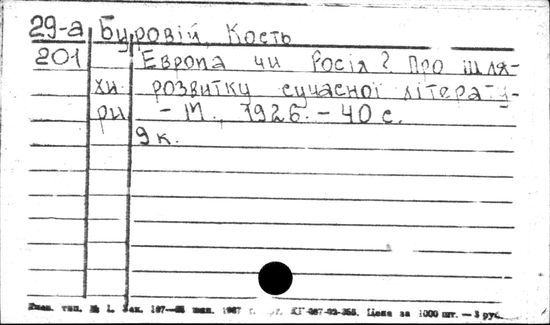 29-а Буровій, Кость
201 Европа чи Росія? Про шля-
хи розвитку сучасної літерату-
ри - М., 1926. - 40 с.
9 к.
тип. № 1. Зак. 197— 1967 г. 087-02-355. Цена за 1000 шт. — 3 руб.